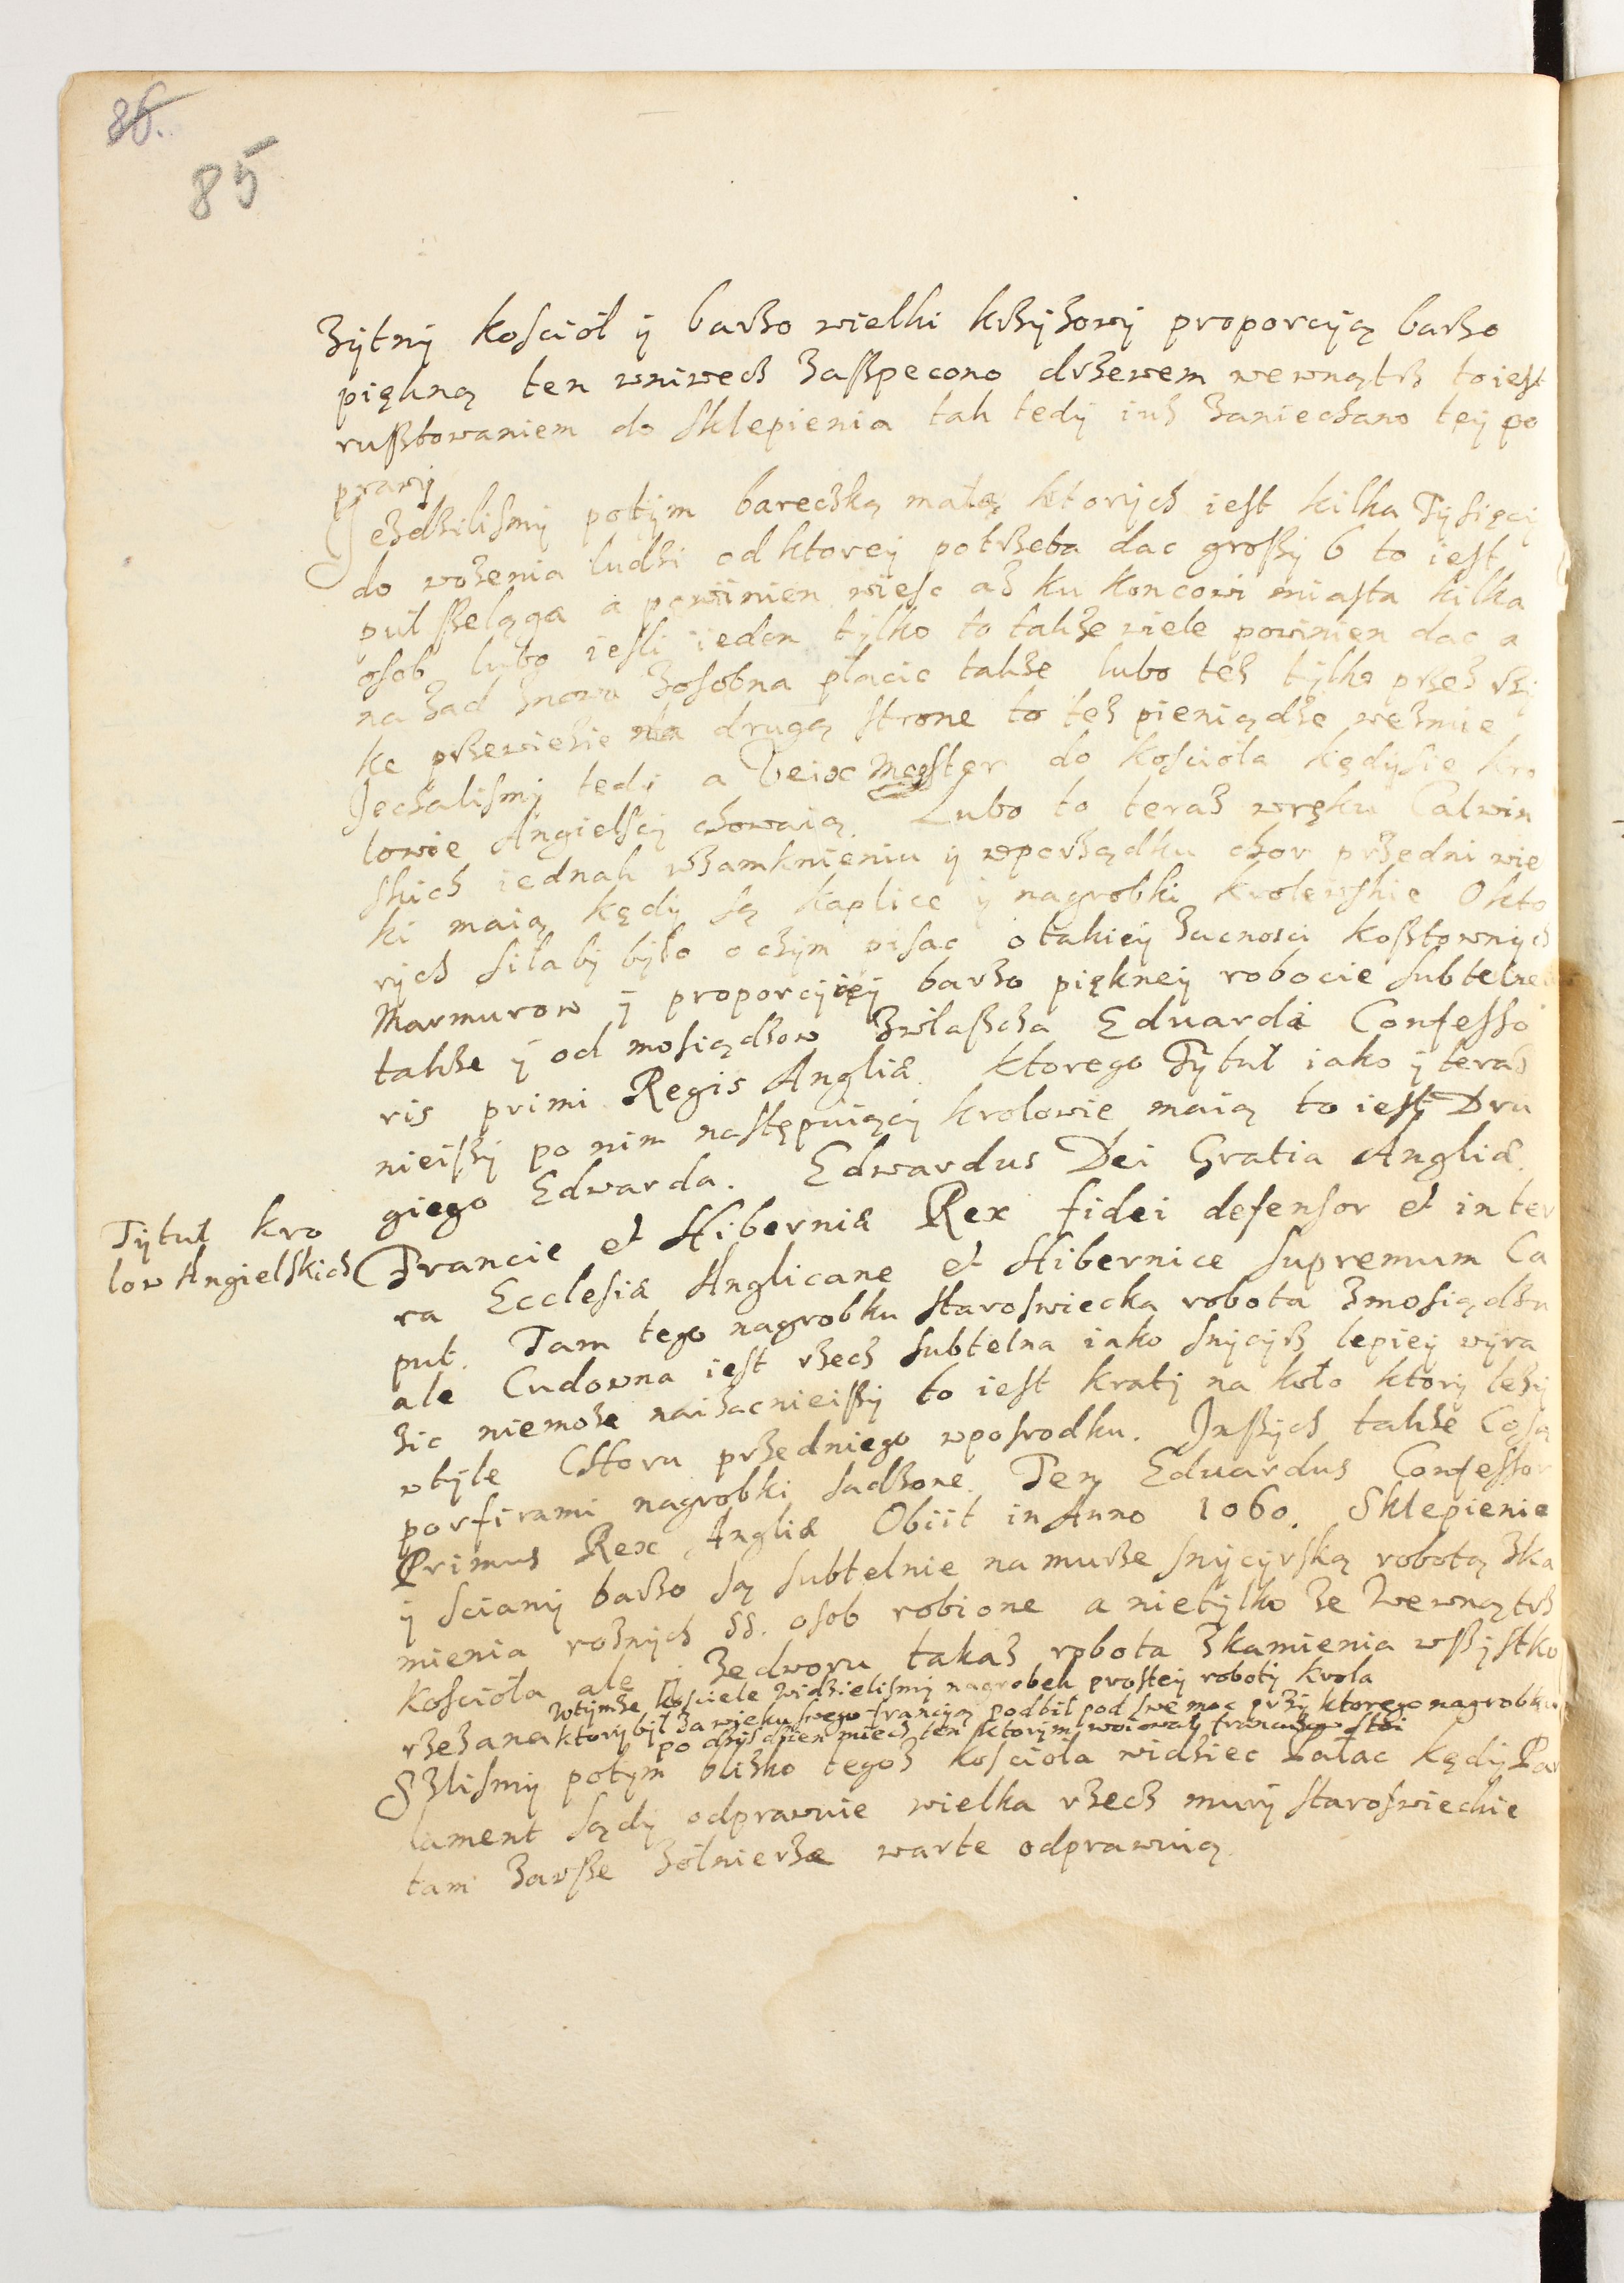 86.
85
zytny kosciol y barzo wielki krzyzowy proporcyą barzo
piękną ten wniwecz zaszpecono drzewem wewnątrz toiest
rusztowaniem do sklepienia tak tedy iuz zaniechano tey po
prawy
Jezdzilismy potym bareczką małą ktorych iest kilka Tysięcy
do wozenia ludzi od ktorey potrzeba dac groszy 6 to iest
puł szeląga a powinien wiesc az ku koncowi miasta kilka
osob lubo iesli ieden tylko to takze wiele powinien dac a
na zad znowu zosobna płacic takze lubo tez tylko przez rzy
ke przewiezie na drugą strone to tez pieniądze wezmie
Jechalismy tedy a Veix Mester do kosciola kędysie kro
lowie Angielscy chowaią. Lubo to teraz wręku Calwin
skich iednak wzamknieniu y wporządku chor przedni wie
ki maią kędy są kaplice y nagrobki krolewskie Okto
rych siłaby było o czym pisac o takiey zacnosci kosztownych
Marmurow y proporcyiey barzo piękney robocie subtelne
takze y od mosiądzow zwłaszcza Eduarda Confesso
ris primi Regis Angliæ. ktorego Tytuł iako y teraz
nieiszy po nim następuiący krolowie maią to iest Dru
giego Edwarda. Edwardus Dei Gratia Angliæ.
Tytuł kro
low Angielskich
Francie et Hiberniæ Rex fidei defensor et inter
ra Ecclesiæ Anglicane et Hibernice supremum Ca
put. Tam tego nagrobku staroswiecka robota zmosiądzu
ale Cudowna iest rzecz subtelna iako snycyrz lepiey wyra
zic niemoze naizacnieiszy to iest kraty na koło ktory lezy
wtyle Choru przedniego wposrodku. Inszych takze Cosą
porfirami nagrobki sadzone. Ten Eduardus Confessor
Primus Rex Angliæ Obiit in Anno 1060. Sklepienie
y sciany barzo są subtelnie na murze snycyrską robotą zka
mienia roznych SS. osob robione a nietylko ze wewnątrz
Kosciola ale y zedworu takaz robota zkamienia wszystko
rzezana Wtymze kosciele widzielismy nagrobek prostey roboty krola
ktory był za wieku swego francyą podbił pod swe moc przy ktorego nagrobku
po dzis dzien miecz ten ktorym woiował francuzow stoi
Szlismy potym blizko tegoz kosciola widziec Pałac kędy Par
lament sądy odprawuie wielka rzecz mury staroswieckie
tam zawsze zołnierze warte odprawuią.